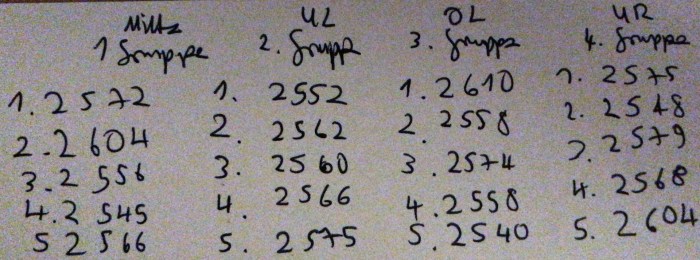 Mitte UL OL UR
1 Gruppe 2. Grupp 3. Gruppe 4. Gruppe
1. 2572 1. 2552 1. 2610 1. 2575
2. 2604 2. 2562 2. 2558 2. 2548
3. 2556 3. 2560 3. 2574 3. 2579
4. 2545 4. 2566 4. 2558 4. 2568
5 2566 5. 2575 5. 2540 5. 2604